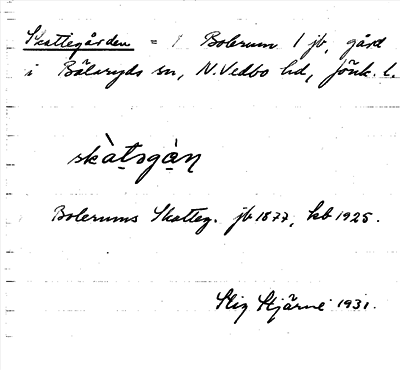 Skattegården = / Bolerum 1 jb, gård
i Bälaryds sn, N. Vedbo hd, Jönk. l.
skàtsgàn
Bolerums Skatteg. jb 1877, kb 1925.
Stig Stjärne 1931.